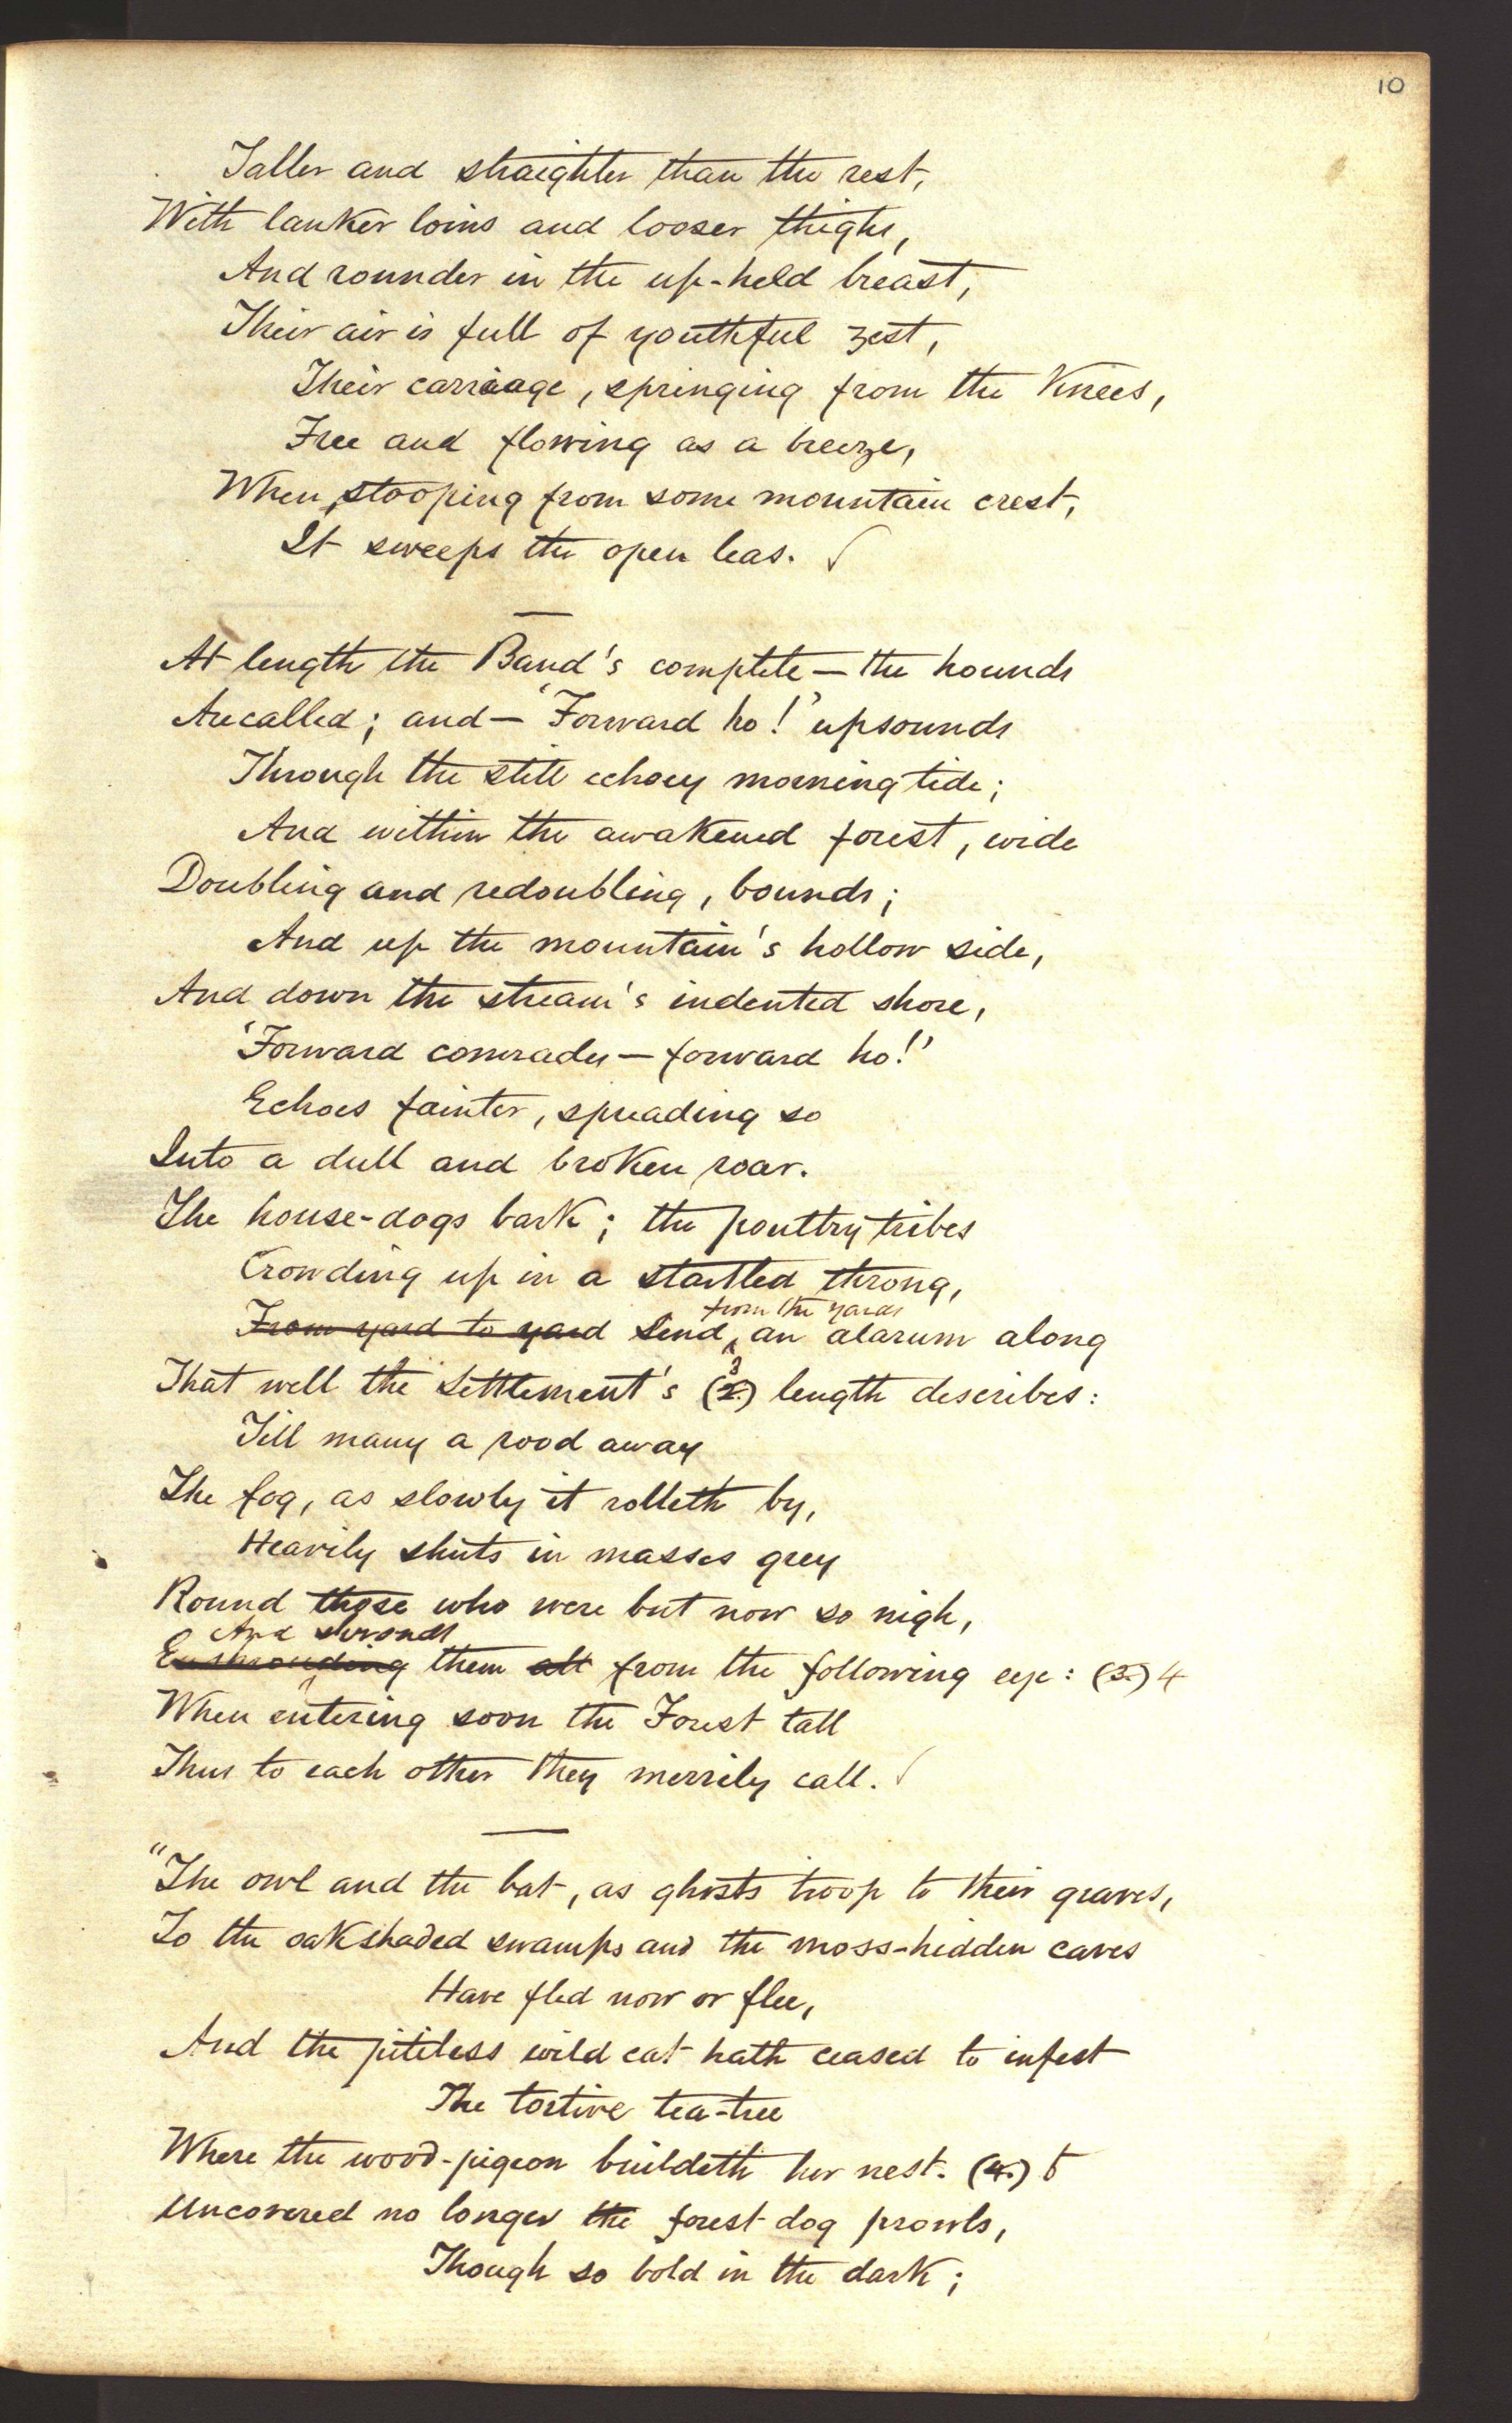 10
Taller and straighter than the rest,
With lanker loins and looser thighs,
And rounder in the up-held breast,
Their air is full of youthful zest,
Their carriage, springing from the knees,
Free and flowing as a breeze,
When, stooping from some mountain crest,
It sweeps the open leas.
At length the Band's complete — the hounds
Are called; and — 'Forward ho!' upsounds
Through the still echoey morning tide;
And within the awakened forest, wide
Doubling and redoubling, bounds;
And up the mountain's hollow side,
And down the stream's indented shore,
'Forward comrades — forward ho!'
Echoes fainter, spreading so
Into a dull and broken roar.
The house-dogs bark; the poultry tribes
Crowding up in a startled throng,
from the yards
From yard to yard Send an alarum along
That well the Settlement's (2.) 3 length describes:
Till many a rood away
The fog, as slowly it rolleth by,
Heavily shuts in masses grey
Round those who were but now so nigh,
And shrouds
Enshrouding them all from the following eye: (3.) 4
When entering soon the Forest tall
Thus to each other they merrily call.
"The owl and the bat, as ghosts troop to their graves,
To the oakshaded swamps and the moss-hidden caves
Have fled now or flee,
And the pitiless wild cat hath ceased to infest
The tortive tea-tree
Where the wood-pigeon buildeth her nest. (4.) 5
Uncovered no longer the forest dog prowls,
Though so bold in the dark;